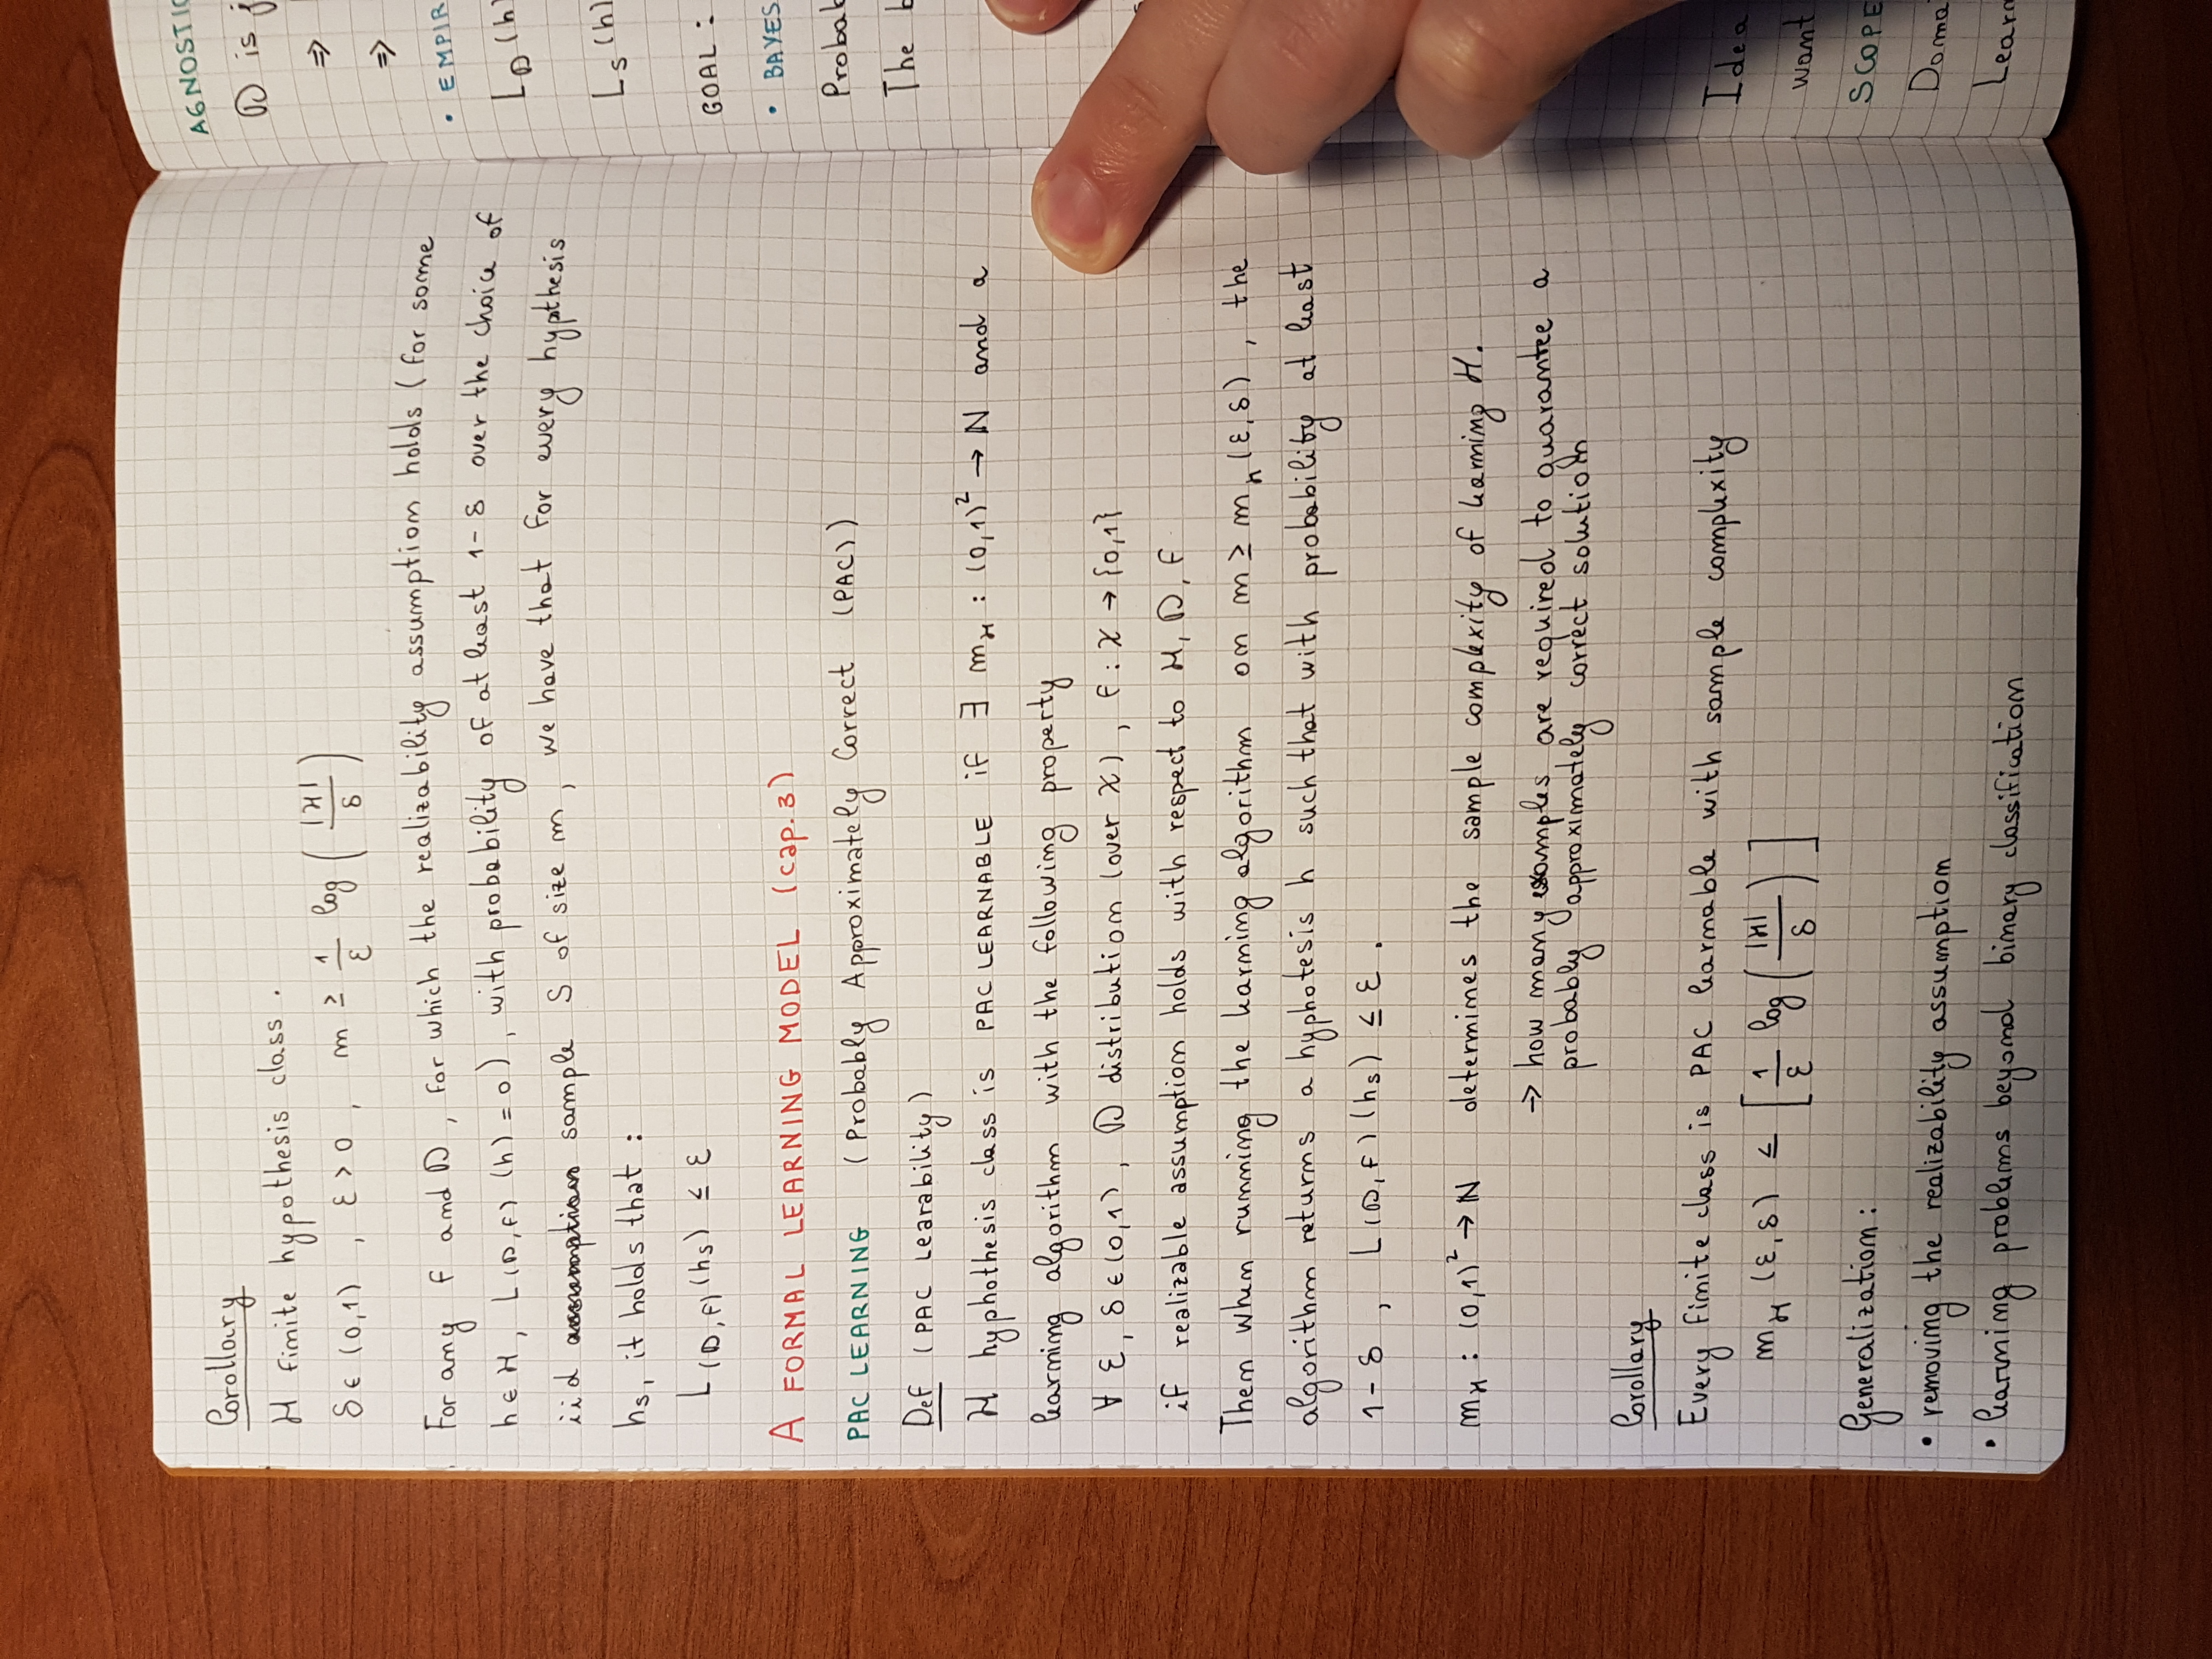 Corollary
H finite hypothesis class .
δ ∈ (0,1) , ε > 0 , m ≥ 1/ε log ( |H| / δ )
For any f and D , for which the realizability assumption holds ( for some
h ∈ H, L(D,f) (h) = 0 ) , with probability of at least 1 - δ over the choice of
iid assumption sample S of size m , we have that for every hypthesis
hs, it holds that :
L(D,f) (hs) ≤ ε
A FORMAL LEARNING MODEL (cap. 3)
PAC LEARNING ( Probably Approximately Correct (PAC) )
Def ( PAC Learability )
H hyphothesis class is PAC LEARNABLE if ∃ mH : (0,1)² → N and a
learning algorithm with the following property
∀ ε, δ ∈ (0,1) , D distribution (over X) , f : X → {0,1}
if realizable assumption holds with respect to H, D, f
Then when running the learning algorithm on m ≥ mh (ε,δ) , the
algorithm returns a hyphotesis h such that with probability at least
1 - δ , L(D,f) (hs) ≤ ε .
mH : (0,1)² → N determines the sample complexity of learning H.
→ how many examples are required to guarantee a
probably approximately correct solution
Corollary
Every finite class is PAC learnable with sample complexity
mH (ε,δ) ≤ [ 1/ε log ( |H| / δ ) ]
Generalization :
• removing the realizability assumption
• learning problems beyond binary classification
AGNOSTIC
D is
⇒
⇒
• EMPIR
LD (h
Ls (h)
GOAL :
• BAYES
Probab
The b
Idea
want
SCOPE
Doma
Learn